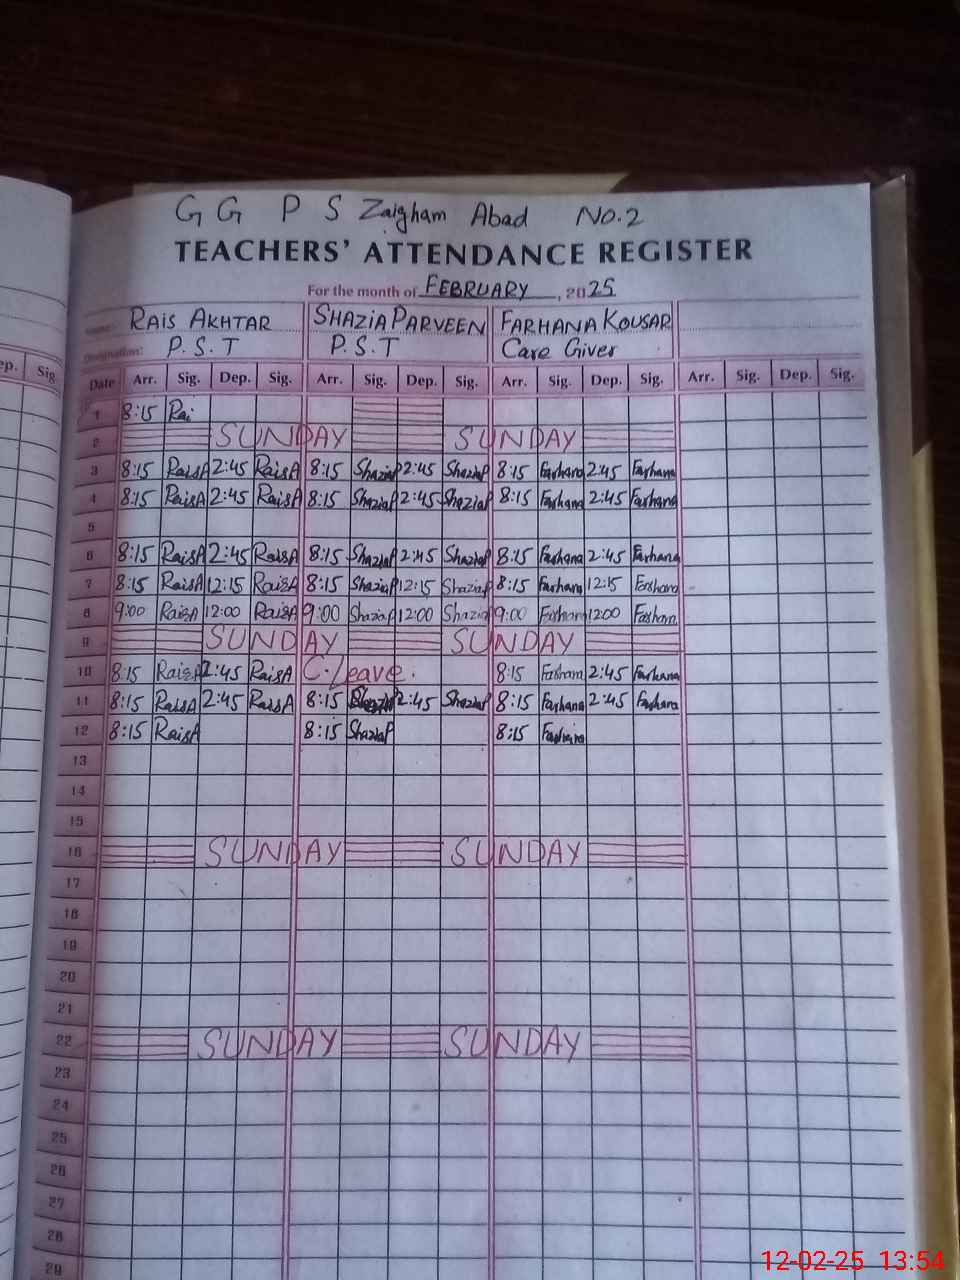 G G P S Zaigham Abad No.2
TEACHERS' ATTENDANCE REGISTER
For the month of FEBRUARY, 2025
Name: RAIS AKHTAR SHAZIA PARVEEN FARHANA KOUSAR
Designation: P.S.T P.S.T Care Giver
ep. Sig. Date Arr. Sig. Dep. Sig. Arr. Sig. Dep. Sig. Arr. Sig. Dep. Sig. Arr. Sig. Dep. Sig.
1 8:15 Rai
2 SUNDAY SUNDAY
3 8:15 RaisA 2:45 RaisA 8:15 ShaziaP 2:45 ShaziaP 8:15 Farhana 2:45 Farhana
4 8:15 RaisA 2:45 RaisA 8:15 ShaziaP 2:45 ShaziaP 8:15 Farhana 2:45 Farhana
5
6 8:15 RaisA 2:45 RaisA 8:15 ShaziaP 2:45 ShaziaP 8:15 Farhana 2:45 Farhana
7 8:15 RaisA 12:15 RaisA 8:15 ShaziaP 12:15 ShaziaP 8:15 Farhana 12:15 Farhana
8 9:00 RaisA 12:00 RaisA 9:00 ShaziaP 12:00 ShaziaP 9:00 Farhana 12:00 Farhana
9 SUNDAY SUNDAY
10 8:15 RaisA 2:45 RaisA C.leave. 8:15 Farhana 2:45 Farhana
11 8:15 RaisA 2:45 RaisA 8:15 2:45 ShaziaP 8:15 Farhana 2:45 Farhana
12 8:15 RaisA 8:15 ShaziaP 8:15 Farhana
13
14
15
16 SUNDAY SUNDAY
17
18
19
20
21
22 SUNDAY SUNDAY
23
24
25
26
27
28
29
12-02-25 13:54